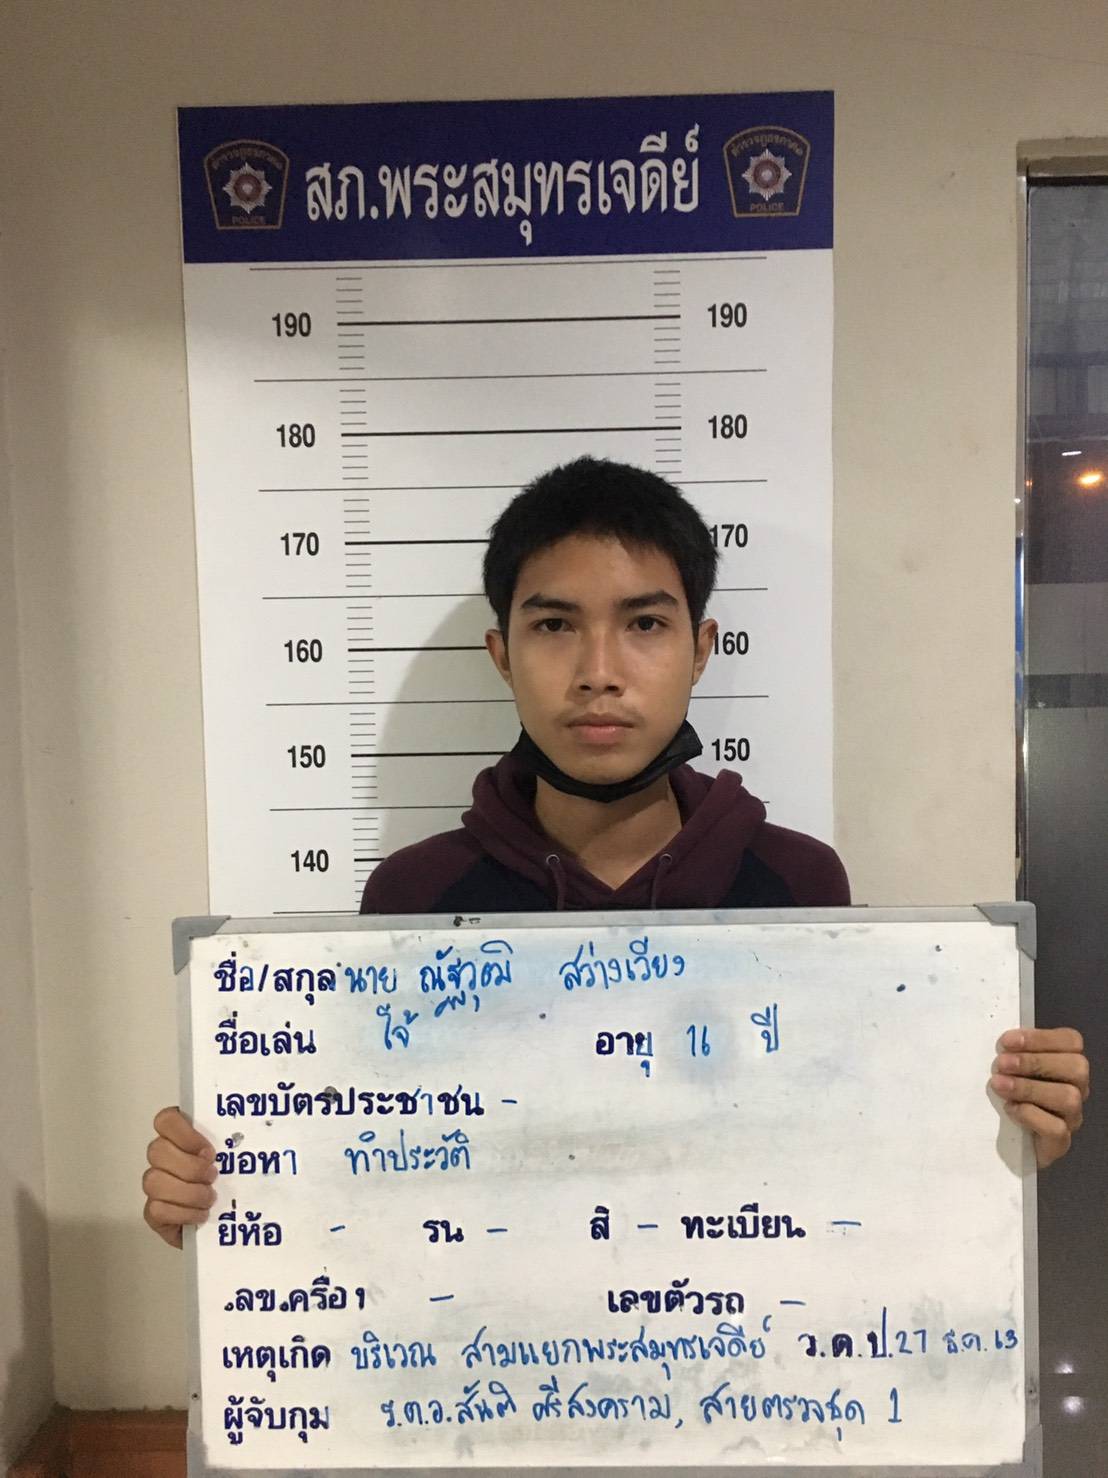 สภ.พระสมุทรเจดีย์
POLICE POLICE
190 190
180 180
170 170
160 160
150 150
140
ชื่อ/สกุล นาย ณัฐวุฒิ สว่างเวียง
ชื่อเล่น โจ้ อายุ 16 ปี
เลขบัตรประชาชน -
ข้อหา ทำประวัติ
ยี่ห้อ - รน - สี - ทะเบียน -
ลข.ครือง - เลขตัวรถ -
เหตุเกิด บริเวณ สามแยกพระสมุทรเจดีย์ ว.ด.ป. 27 ธ.ค. 63
ผู้จับกุม ร.ต.อ. สันติ ศรีสงคราม, สายตรวจชุด 1